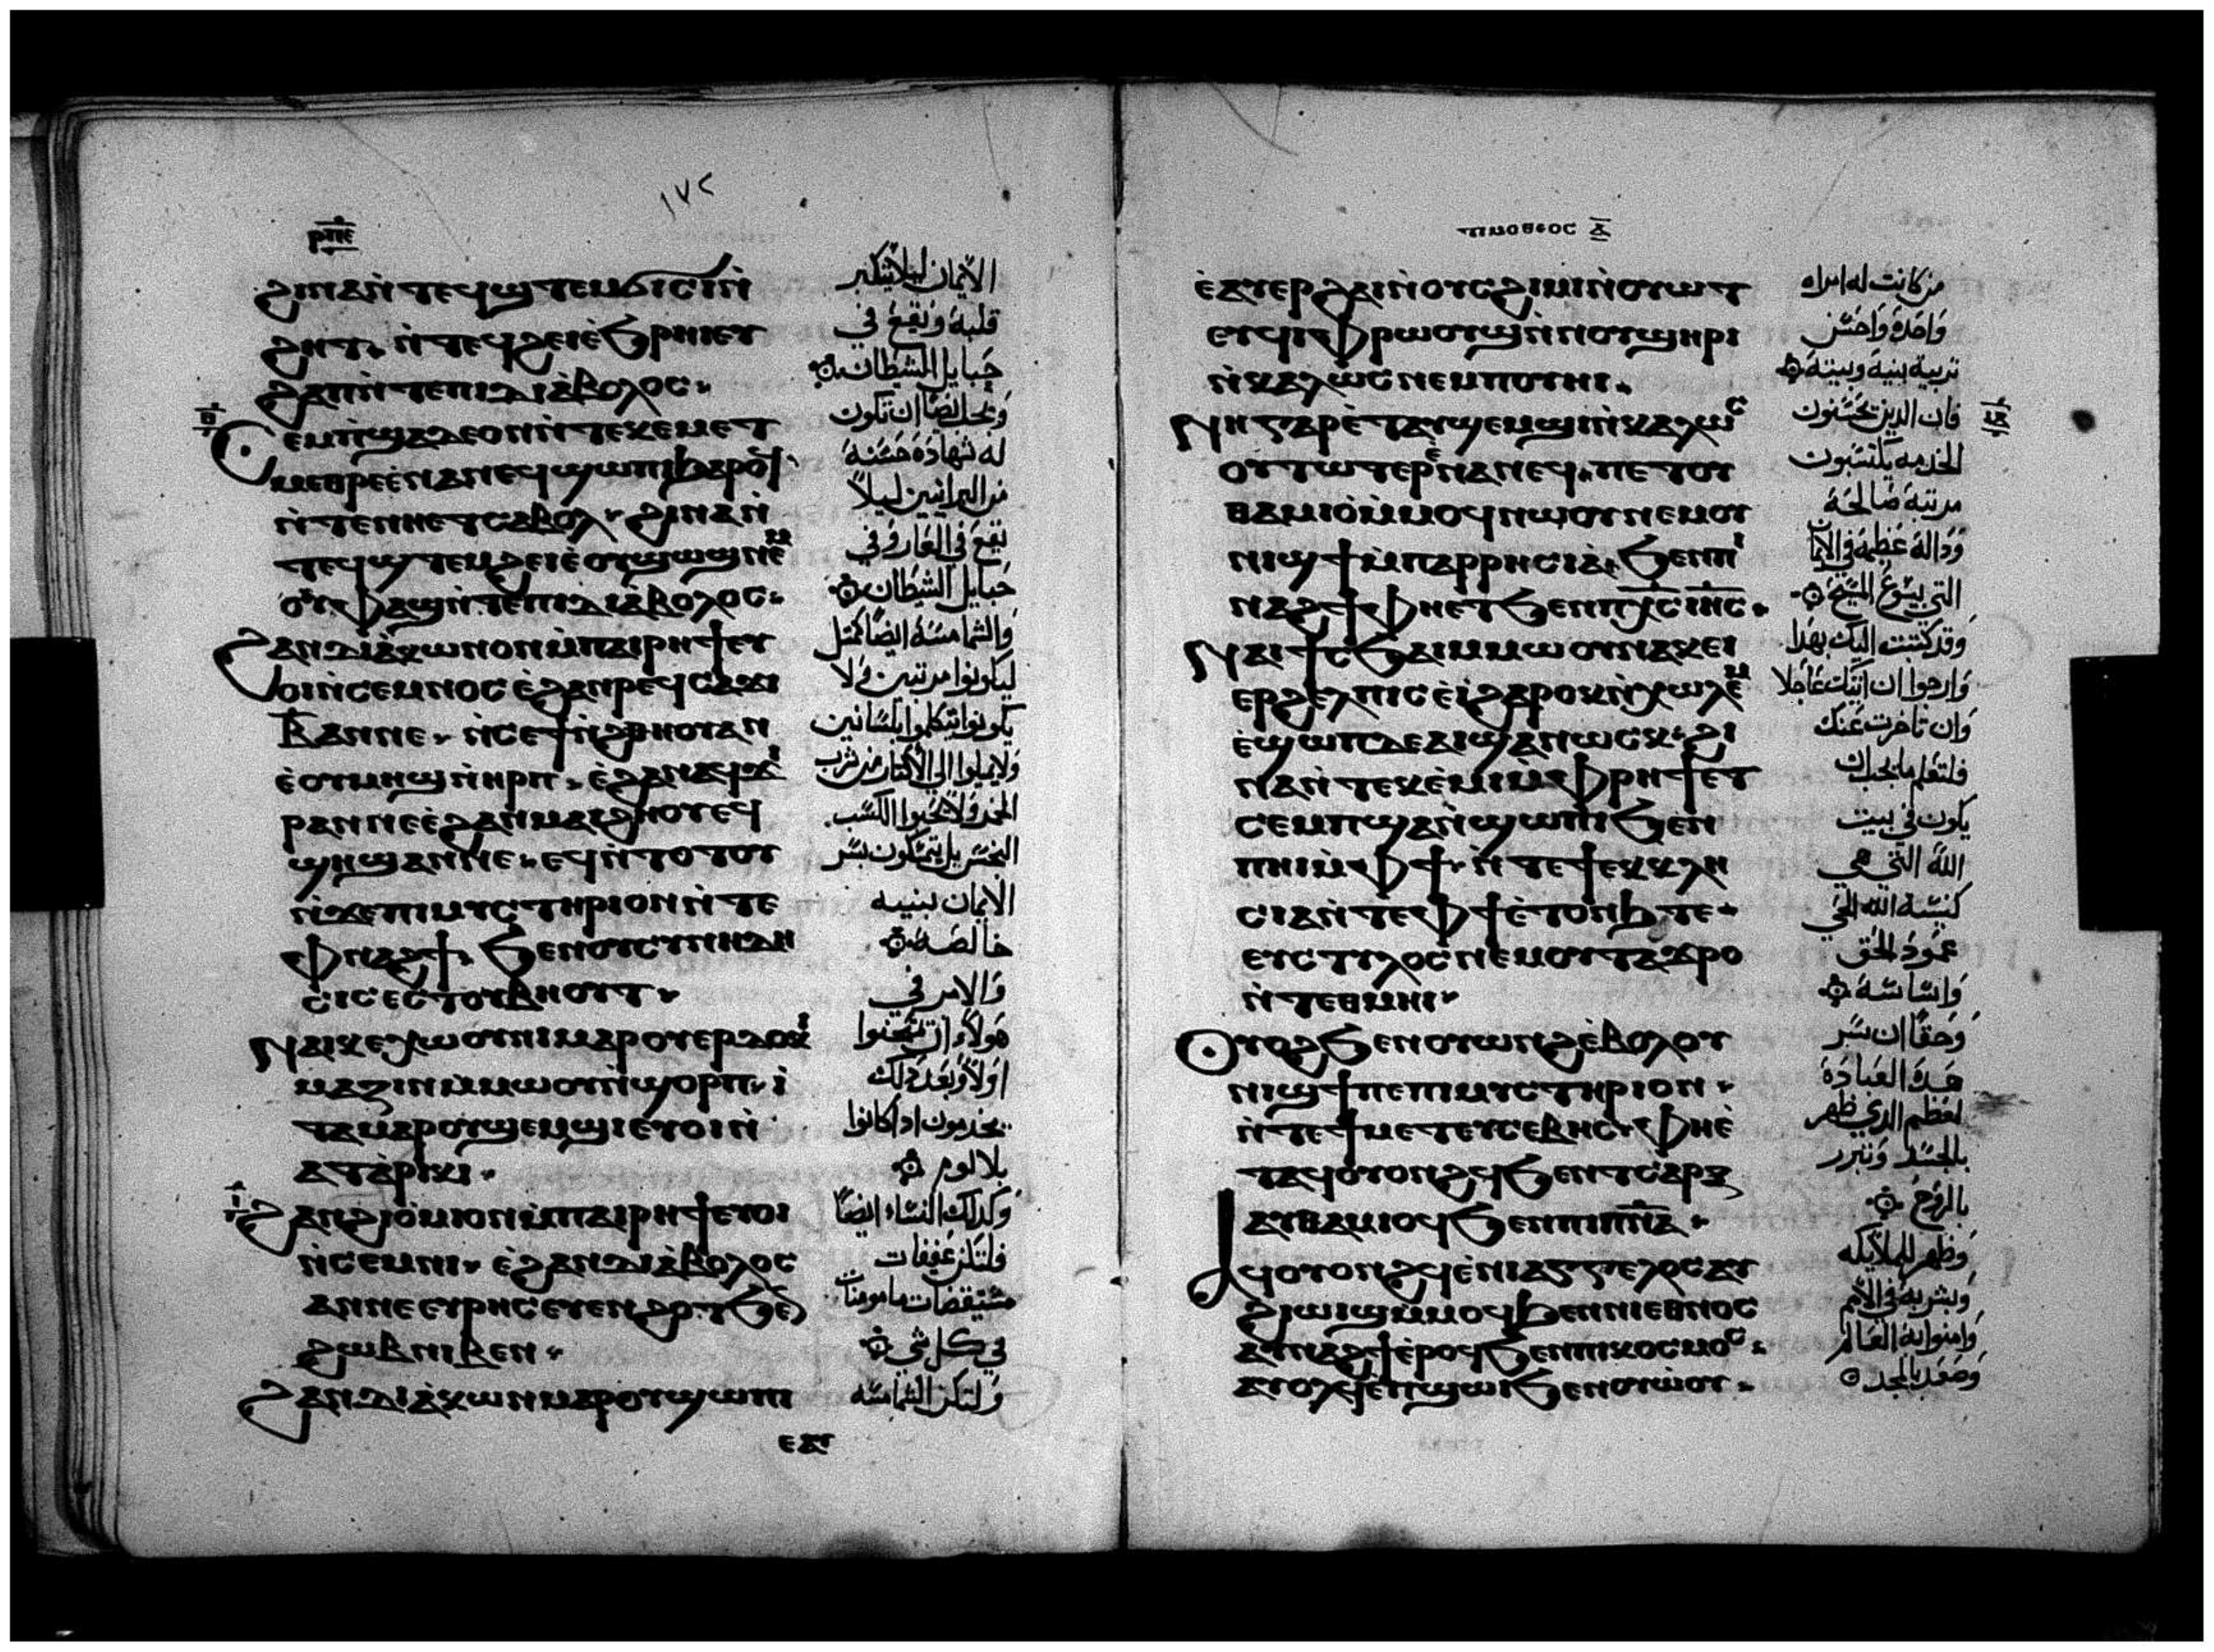 ⲣⲡⲉ
١٧٢
ϩⲓⲛⲁ ⲛ̀ⲧⲉϥϣⲧⲉⲙϭⲓⲥⲓ ⲛ̀
ϩⲏⲧ. ⲛ̀ⲧⲉϥϩⲉⲓ ⲉ̀ϧⲣⲏⲓ ⲉⲩ
ϩⲁⲡ ⲛ̀ⲧⲉ ⲡⲓⲇⲓⲁ̀ⲃⲟⲗⲟⲥ.
ⲥⲉⲙ̀ⲡϣⲁ ⲇⲉ ⲟⲛ ⲛ̀ⲧⲉ ⲕⲉⲙⲉⲧ
ⲙⲉⲑⲣⲉ ⲉ̀ⲛⲁⲛⲉⲥ ϣⲱⲡⲓ ϧⲁⲣⲟϥ
ⲛ̀ⲧⲉⲛ ⲛⲏⲉⲧⲥⲁⲃⲟⲗ. ϩⲓⲛⲁ ⲛ̀
ⲧⲉϥϣⲧⲉⲙϩⲉⲓ ⲉ̀ⲟⲩϣⲱϣ ⲛⲉⲙ
ⲟⲩⲫⲁϣ ⲛ̀ⲧⲉ ⲡⲓⲇⲓⲁ̀ⲃⲟⲗⲟⲥ.
ϩⲁⲛⲇⲓⲁ̀ⲕⲱⲛ ⲟⲛ ⲙ̀ⲡⲁⲓⲣⲏϯ ⲉⲩ
ⲟⲓ ⲛ̀ⲥⲉⲙⲛⲟⲥ ⲉ̀ϩⲁⲛⲣⲉϥⲥⲁϫⲓ
ⲃ̅ ⲁⲛ ⲛⲉ. ⲛ̀ⲥⲉϯ ⲛ̀ϩⲑⲏⲟⲩ ⲁⲛ
ⲉ̀ⲟⲩⲙⲏϣ ⲛ̀ⲏⲣⲡ. ⲉ̀ϩⲁⲛⲁϥϫⲓ
ⲣⲁⲛ ⲛⲉ ⲉ̀ϩⲁⲛⲙⲁⲓϩⲏⲟⲩ ⲉϥ
ϣⲏϣ ⲁⲛ ⲛⲉ. ⲉϥⲛ̀ⲧⲟⲧⲟⲩ
ⲛ̀ϫⲉ ⲡⲓⲙⲩⲥⲧⲏⲣⲓⲟⲛ ⲛ̀ⲧⲉ
ⲫⲛⲁϩϯ. ϧⲉⲛ ⲟⲩⲥⲩⲛⲏⲇⲏ
ⲥⲓⲥ ⲉⲥⲧⲟⲩⲃⲏⲟⲩⲧ.
ⲛⲁⲓⲕⲉⲭⲱⲟⲩⲛⲓ ⲙⲁⲣⲟⲩⲉⲣⲇⲟⲕⲓ
ⲙⲁⲍⲓⲛ ⲙ̀ⲙⲱⲟⲩ ⲛ̀ϣⲟⲣⲡ. ⲓ̀
ⲧⲁ ⲙⲁⲣⲟⲩϣⲉⲙϣⲓ ⲉⲩⲟⲓ ⲛ̀
ⲁⲧⲁ̀ⲣⲓⲕⲓ.
ϩⲁⲛϩⲓⲟ̀ⲙⲓ ⲟⲛ ⲙ̀ⲡⲁⲓⲣⲏϯ ⲉⲩⲟⲓ
ⲛ̀ⲥⲉⲙⲛⲓ. ⲉ̀ϩⲁⲛⲇⲓⲁ̀ⲃⲟⲗⲟⲥ
ⲁⲛ ⲛⲉ ⲉⲩⲣⲏⲥ ⲉⲩⲉⲛϩⲟⲧ ϧⲉⲛ
ϩⲱⲃ ⲛⲓⲃⲉⲛ.
ϩⲁⲛⲇⲓⲁ̀ⲕⲱⲛ ⲙⲁⲣⲟⲩϣⲱⲡⲓ
ⲉⲁⲩ
الايمان ليلا يتكبر
قلبه ويقع في
حبايل الشيطان
وينبغي ايضا ان تكون
له شهادة حسنة
من البرانيين ليلا
يقع في العار وفي
حبايل الشيطان
والشمامسة ايضا كمثل
ليكونوا مرتبين ولا
يكونوا يتكلموا بلسانين
ولا يميلوا الي الاكثار من شرب
الخمر ولا يحبوا الكسب
النجس بل يتمسكون بسر
الايمان بنييه
خالصة
والامر في
هولاء ان يمتحنوا
اولا وبعد ذلك
يخدمون اذ كانوا
بلا لوم
وكذلك النساء ايضا
فلتكن عفيفات
مستيقضات مامونات
في كل شي
ولتكن الشمامسه
ⲧⲓⲙⲟⲑⲉⲟⲥ ⲁ̅
ⲉ̀ⲁⲩⲉⲣϩⲁⲓ ⲛ̀ⲟⲩⲥϩⲓⲙⲓ ⲛ̀ⲟⲩⲱⲧ
ⲉⲩϥⲓⲫⲣⲱⲟⲩϣ ⲛ̀ⲛⲟⲩϣⲏⲣⲓ
ⲛ̀ⲕⲁⲗⲱⲥ ⲛⲉⲙ ⲛⲟⲩⲏⲓ.
ⲛⲏ ⲅⲁⲣ ⲉ̀ⲧⲁⲩϣⲉⲙϣⲓ ⲛ̀ⲕⲁⲗⲱⲥ
ⲟⲩⲧⲱⲧⲉⲣ ⲉ̀ⲛⲁⲛⲉϥ. ⲡⲉⲧⲟⲩ
ⲑⲁⲙⲓⲟ̀ ⲙ̀ⲙⲟϥ ⲛⲱⲟⲩ ⲛⲉⲙ ⲟⲩ
ⲛⲓϣϯ ⲙ̀ⲡⲁⲣⲣⲏⲥⲓⲁ̀. ϧⲉⲛ ⲡⲓ
ⲛⲁϩϯ ⲫⲏⲉⲧϧⲉⲛ ⲡⲭ̅ⲥ̅ ⲓⲏ̅ⲥ̅.
ⲛⲁⲓ ϯⲥϧⲁⲓ ⲙ̀ⲙⲱⲟⲩ ⲛⲁⲕ ⲉⲓ
ⲉⲣϩⲉⲗⲡⲓⲥ ⲉ̀ⲓ̀ ϩⲁⲣⲟⲕ ⲛ̀ⲭⲱⲗⲉⲙ
ⲉ̀ϣⲱⲡ ⲇⲉ ⲁⲓϣⲁⲛⲱⲥⲕ. ϩⲓ
ⲛⲁ ⲛ̀ⲧⲉⲕⲉ̀ⲙⲓ ⲙ̀ⲫⲣⲏϯ ⲉⲧ
ⲥⲉⲙⲡϣⲁ ⲛ̀ϣⲱⲡⲓ ϧⲉⲛ
ⲡⲏⲓ ⲙ̀ⲫϯ. ⲛ̀ⲧⲉ ϯⲉⲕⲕⲗⲏ
ⲥⲓⲁ ⲛ̀ⲧⲉ ⲫϯ ⲉ̀ⲧⲟⲛϧ ⲧⲉ.
ⲉⲩⲥⲧⲩⲗⲟⲥ ⲛⲉⲙ ⲟⲩⲧⲁϫⲣⲟ
ⲛ̀ⲧⲉ ⲑⲙⲏⲓ.
ⲟⲩⲟϩ ϧⲉⲛ ⲟⲩⲱⲛϩ ⲉ̀ⲃⲟⲗ ⲟⲩ
ⲛⲓϣϯ ⲡⲉ ⲡⲓⲙⲩⲥⲧⲏⲣⲓⲟⲛ.
ⲛ̀ⲧⲉ ϯⲙⲉⲧⲉⲩⲥⲉⲃⲏⲥ. ⲫⲏ ⲉ̀
ⲧⲁϥⲟⲩⲟⲛϩϥ ϧⲉⲛ ⲧⲥⲁⲣⲝ
ⲁⲩⲑⲁⲙⲓⲟϥ ϧⲉⲛ ⲡⲓⲡ̅ⲛ̅ⲁ̅.
ⲁϥⲟⲩⲟⲛϩϥ ⲉ̀ⲛⲓⲁⲅⲅⲉⲗⲟⲥ ⲁⲩ
ϩⲓⲱⲓϣ ⲙ̀ⲙⲟϥ ϧⲉⲛ ⲛⲓⲉⲑⲛⲟⲥ
ⲁⲩⲛⲁϩϯ ⲉ̀ⲣⲟϥ ϧⲉⲛ ⲡⲓⲕⲟⲥⲙⲟⲥ.
ⲁⲩⲟⲗϥ ⲉ̀ⲡϣⲱⲓ ϧⲉⲛ ⲟⲩⲱ̀ⲟⲩ.
من كانت له امراه
واحدة واحسن
تربية بنيه وبيته
فان الذين يحسنون
الخدمه يكتسبون
مرتبة صالحة
ودالة عظيمة في الايمان
التي بيسوع المسيح
وقد كتبت اليك بهذا
وارجوا ان اتيك عاجلا
وان تاخرت عنك
فلتعلم ما يجب ان
يكون في بيت
الله التي هي
كنيسة الله الحي
عمود الحق
واساسه
وحقا ان سر
هذه العبادة
لعظيم الذي ظهر
بالجسد وتبرر
بالروح
وظهر للملايكه
وبشر به في الامم
وامنوا به العالم
وصعد بالمجد